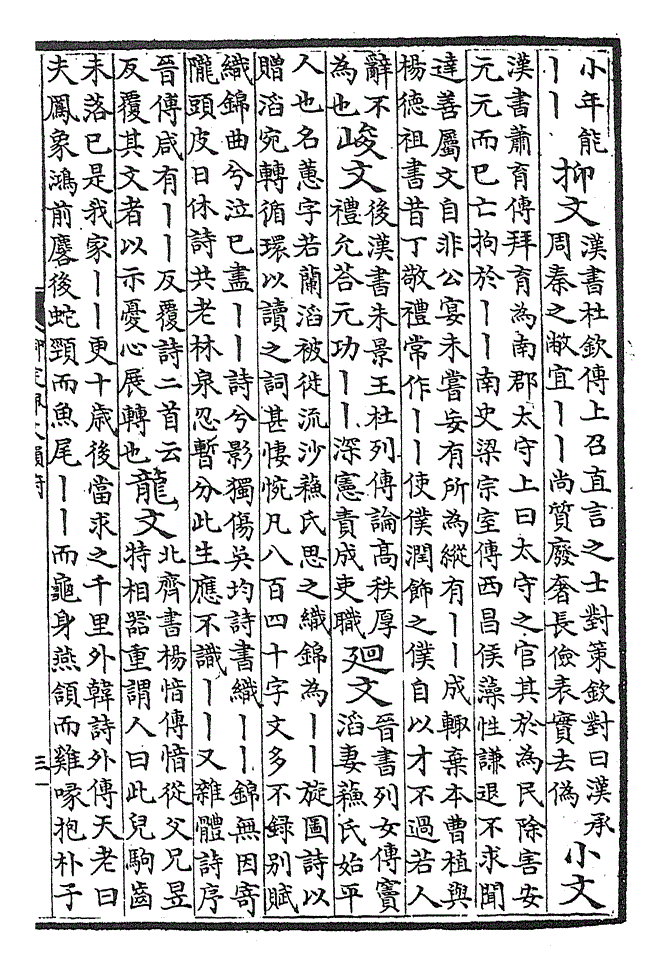 小年能
丨丨
抑文
漢書杜欽傳上召直言之士對策欽對曰漢承
周秦之敝宜丨丨尚質廢奢長儉表實去偽
小文
漢書蕭育傳拜育為南郡太守上曰太守之官其於為民除害安
元元而已亡拘於丨丨南史梁宗室傳西昌侯藻性謙退不求聞
達善屬文自非公宴未嘗妄有所為縱有丨丨成輒棄本曹植與
楊德祖書昔丁敬禮常作丨丨使僕潤飾之僕自以才不過若人
辭不
為也
峻文
後漢書朱景王杜列傳論高秩厚
禮允荅元功丨丨深憲責成吏職
廻文
晉書列女傳竇
滔妻蘇氏始平
人也名蕙字若蘭滔被徙流沙蘇氏思之織錦為丨丨旋圖詩以
贈滔宛轉循環以讀之詞甚悽惋凡八百四十字文多不錄別賦
織錦曲兮泣已盡丨丨詩兮影獨傷吳均詩書織丨丨錦無因寄
隴頭皮日休詩共老林泉忍暫分此生應不識丨丨又雜體詩序
晉傅咸有丨丨反覆詩二首云
反覆其文者以示憂心展轉也
龍文
北齊書楊愔傳愔從父兄昱
特相器重謂人曰此兒駒齒
未落已是我家丨丨更十歲後當求之千里外韓詩外傳天老曰
夫鳳象鴻前麐後蛇頸而魚尾丨丨而龜身燕頷而雞喙抱朴子
三